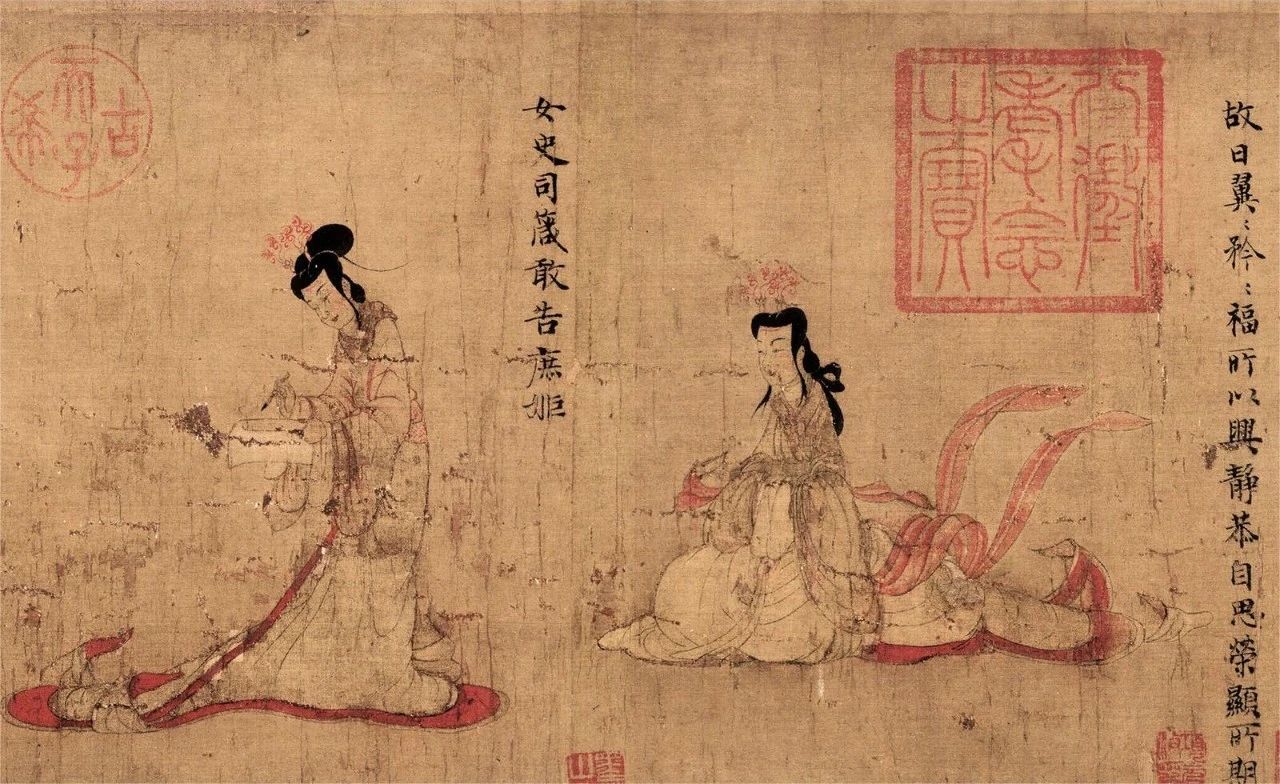 故曰翼〻矜〻福所以興靜恭自思榮顯所期
八徵耄念之寶
女史司箴敢告庶姬
古希天子